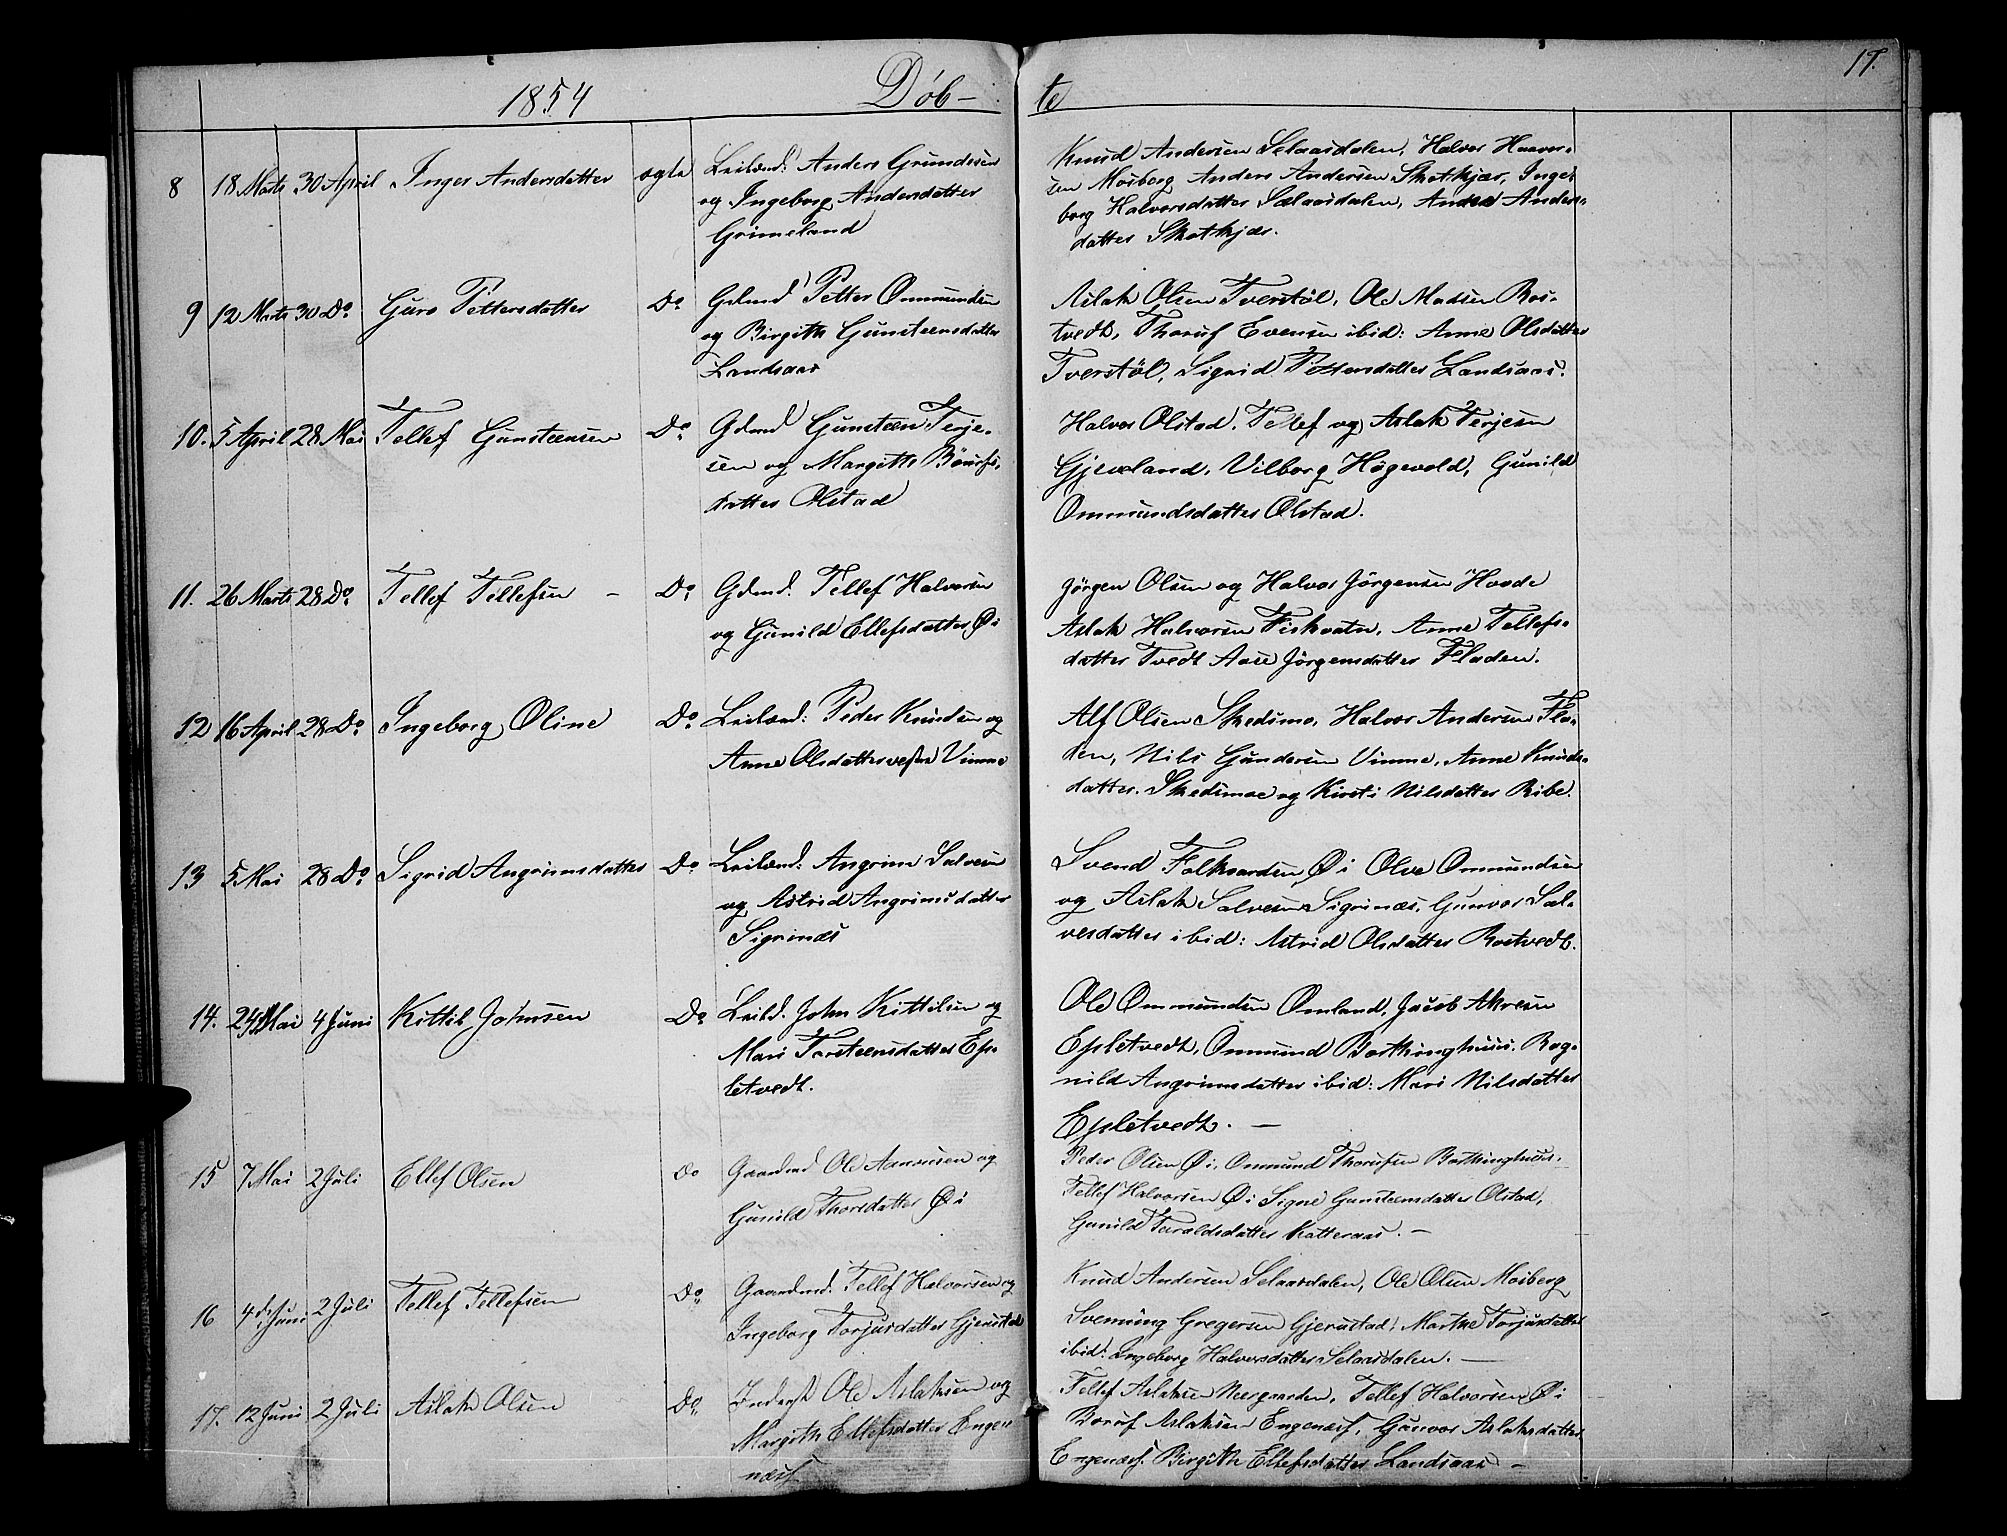 17.
1854 Döb- te
8 18 Marts 30 April Inger Andersdatter ægte Leilænd: Anders Grundesen
og Ingeborg Andersdatter
Grimeland
Knud Andersen Selaasdalen, Halvor Haavor-
sen Moiberg Anders Andersen Skotkjær, Inge-
borg Halvorsdatter Sælaasdalen, Anders-
datter Skotkjær.
9 12 Marts 30 Do Guro Pettersdatter Do Gdmd Petter Ommundsen
og Birgith Gunsteensdatter
Landsaas
Aslak Olsen Tverstöl, Ole Madsen Ros-
tvedt, Thoruf Evensen ibid: Anne Olsdatter
Tverstöl, Sigrid Pettersdatter Landsaas.
10. 5 April 28 Mai Tellef Gunsteensen Do Gdmd Gunsteen Terje-
sen og Margith Börufs-
datter Olstad
Halvor Olstad, Tellef og Aslak Terjesen
Gjeveland, Vilborg Högevold, Gunild
Ommundsdatter Olstad.
11. 26 Marts 28 Do Tellef Tellefsen - Do Gdmd. Tellef Halvorsen
og Gunild Ellefsdatter Öi
Jörgen Olsen og Halvor Jörgensen Hovde
Aslak Halvorsen Fiskvatn, Anne Tellefs-
datter Tvedt Aase Jörgensdatter Fladen.
12 16 April 28 Do Ingeborg Oline Do Leilænd: Peder Knudsen og
Anne Olsdatter vestre Vimme
Alf Olsen Skedsmo, Halvor Andersen Fla-
den, Nils Gundersen Vimme, Anne Knuds-
datter Skedsmoe og Kirsti Nilsdatter Ribe.
13 5 Mai 28 Do Sigrid Angrimsdatter Do Leilænd: Angrim Salvesen
og Astrid Angrimsdatter
Sigrinæs
Svend Folkvarden Öi Olve Ommundsen
og Aslak Salvesen Sigrinæs, Gunvor Sal-
vesdatter ibid: Astrid Olsdatter Rostvedt.
14. 24 Mai 4 Juni Kittil Johnsen Do Leild. John Kittilsen og
Mari Torsteensdatter Eps-
letvedt.
Ole Ommundsen Omland, Jacob Akresen
Epsletvedt, Ommund Borthinghuus, Rag-
nild Angrimsdatter ibid: Mari Nilsdatter
Epsletvedt. -
15 7 Mai 2 Juli Ellef Olsen Do Gaardmd Ole Aanonsen og
Gunild Thorsdatter Öi
Peder Olsen Öi, Ommund Thorufsen Borthinghuus.
Tellef Halvorsen Öi Signe Gunsteensdatter Olstad,
Gunild Taraldsdatter Katteraas. -
16 4de Juni 2 Juli Tellef Tellefsen Do Gaardmd. Tellef Halvorsen og
Ingeborg Torjusdatter Gjerustad
Knud Andersen Selaasdalen, Ole Olsen Moiberg
Svenning Gregersen Gjerustad, Marthe Torjusdatter
ibid: Ingeborg Halvorsdatter Selaasdalen. -
17. 12 Juni 2 Juli Aslak Olsen Do Inderst Ole Aslaksen og
Margith Ellefsdatter Enge-
næs
Tellef Aslaksen Neergaarden, Tellef Halvorsen Öi
Boruf Aslaksen Engenæs, Gunvor Aslaksdatter
Engenæs. Birgith Ellefsdatter Landsaas -